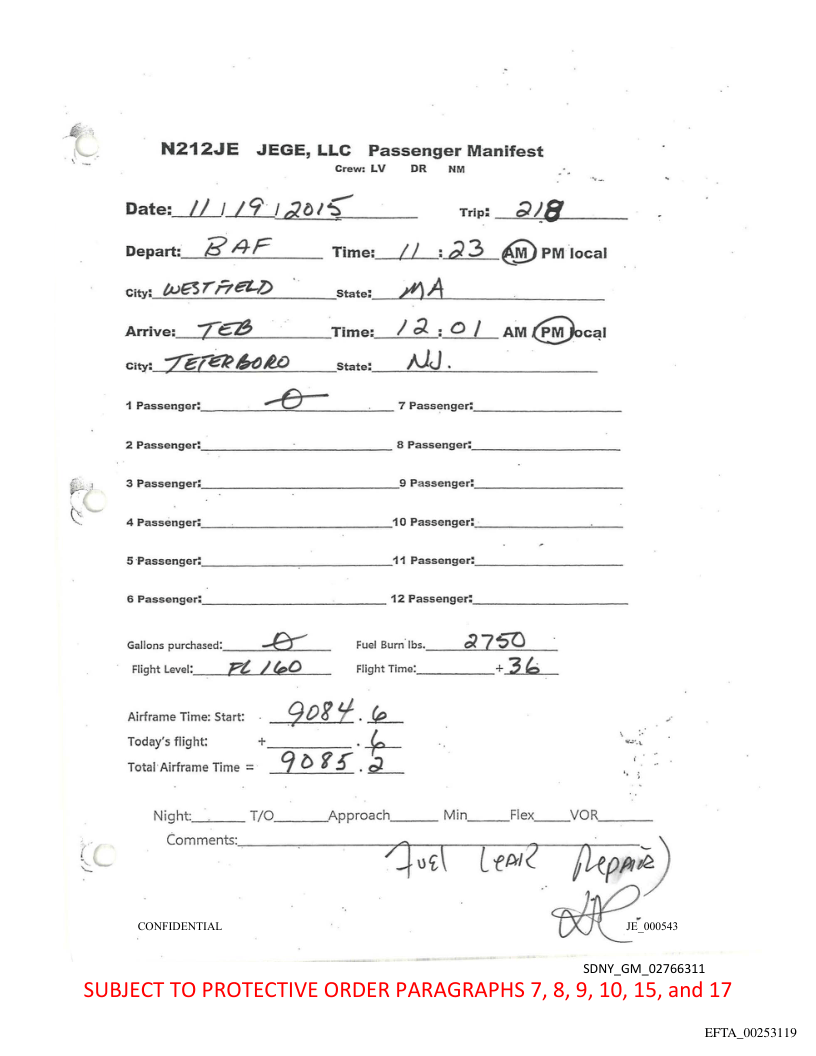 N212JE JEGE, LLC Passenger Manifest
Crew: LV DR NM
Date: 11 / 19 / 2015 Trip: 218
Depart: BAF Time: 11 : 23 AM PM local
City: WESTFIELD State: MA
Arrive: TEB Time: 12 : 01 AM PM local
City: TETERBORO State: NJ.
1 Passenger: 0 7 Passenger:
2 Passenger: 8 Passenger:
3 Passenger: 9 Passenger:
4 Passenger: 10 Passenger:
5 Passenger: 11 Passenger:
6 Passenger: 12 Passenger:
Gallons purchased: 0 Fuel Burn lbs. 2750
Flight Level: FL 160 Flight Time: + 36
Airframe Time: Start: 9084 . 6
Today's flight: + . 6
Total Airframe Time = 9085 . 2
Night: T/O Approach Min Flex VOR
Comments:
FUEL LEAK Repair
CONFIDENTIAL JE_000543
SDNY_GM_02766311
SUBJECT TO PROTECTIVE ORDER PARAGRAPHS 7, 8, 9, 10, 15, and 17
EFTA_00253119